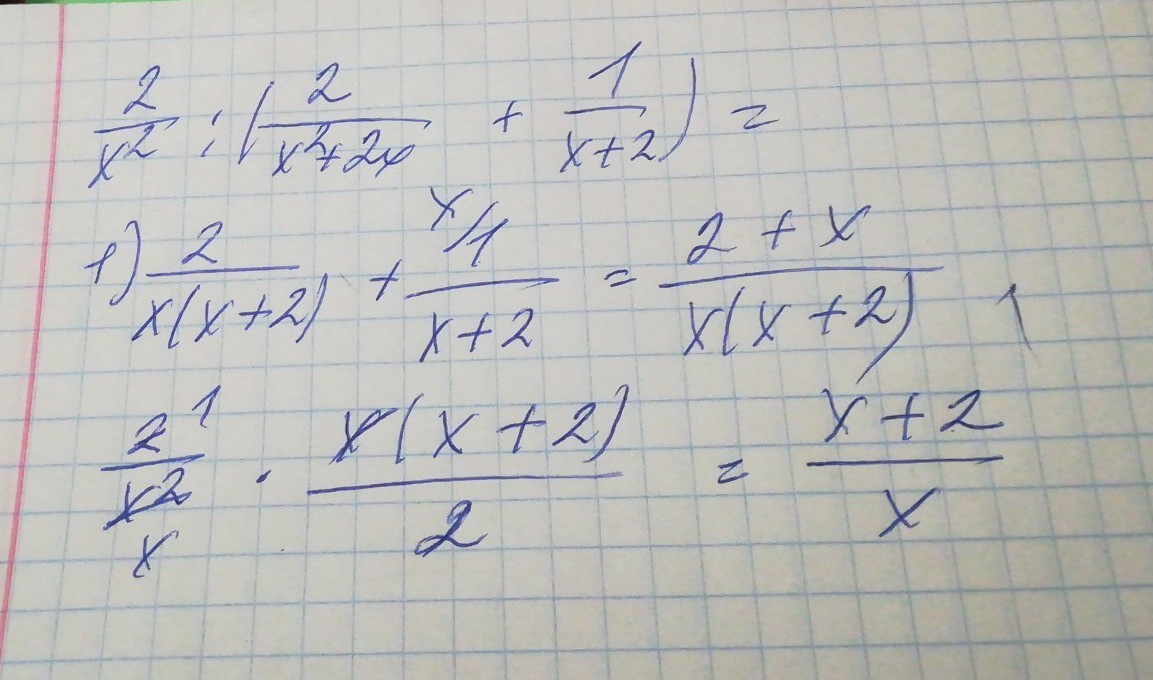 2/x² : (2/(x²+2x) + 1/(x+2)) =
1) 2/(x(x+2)) + ˣ/1/(x+2) = (2+x)/(x(x+2))
2 1/x² x · x(x+2)/2 = (x+2)/x